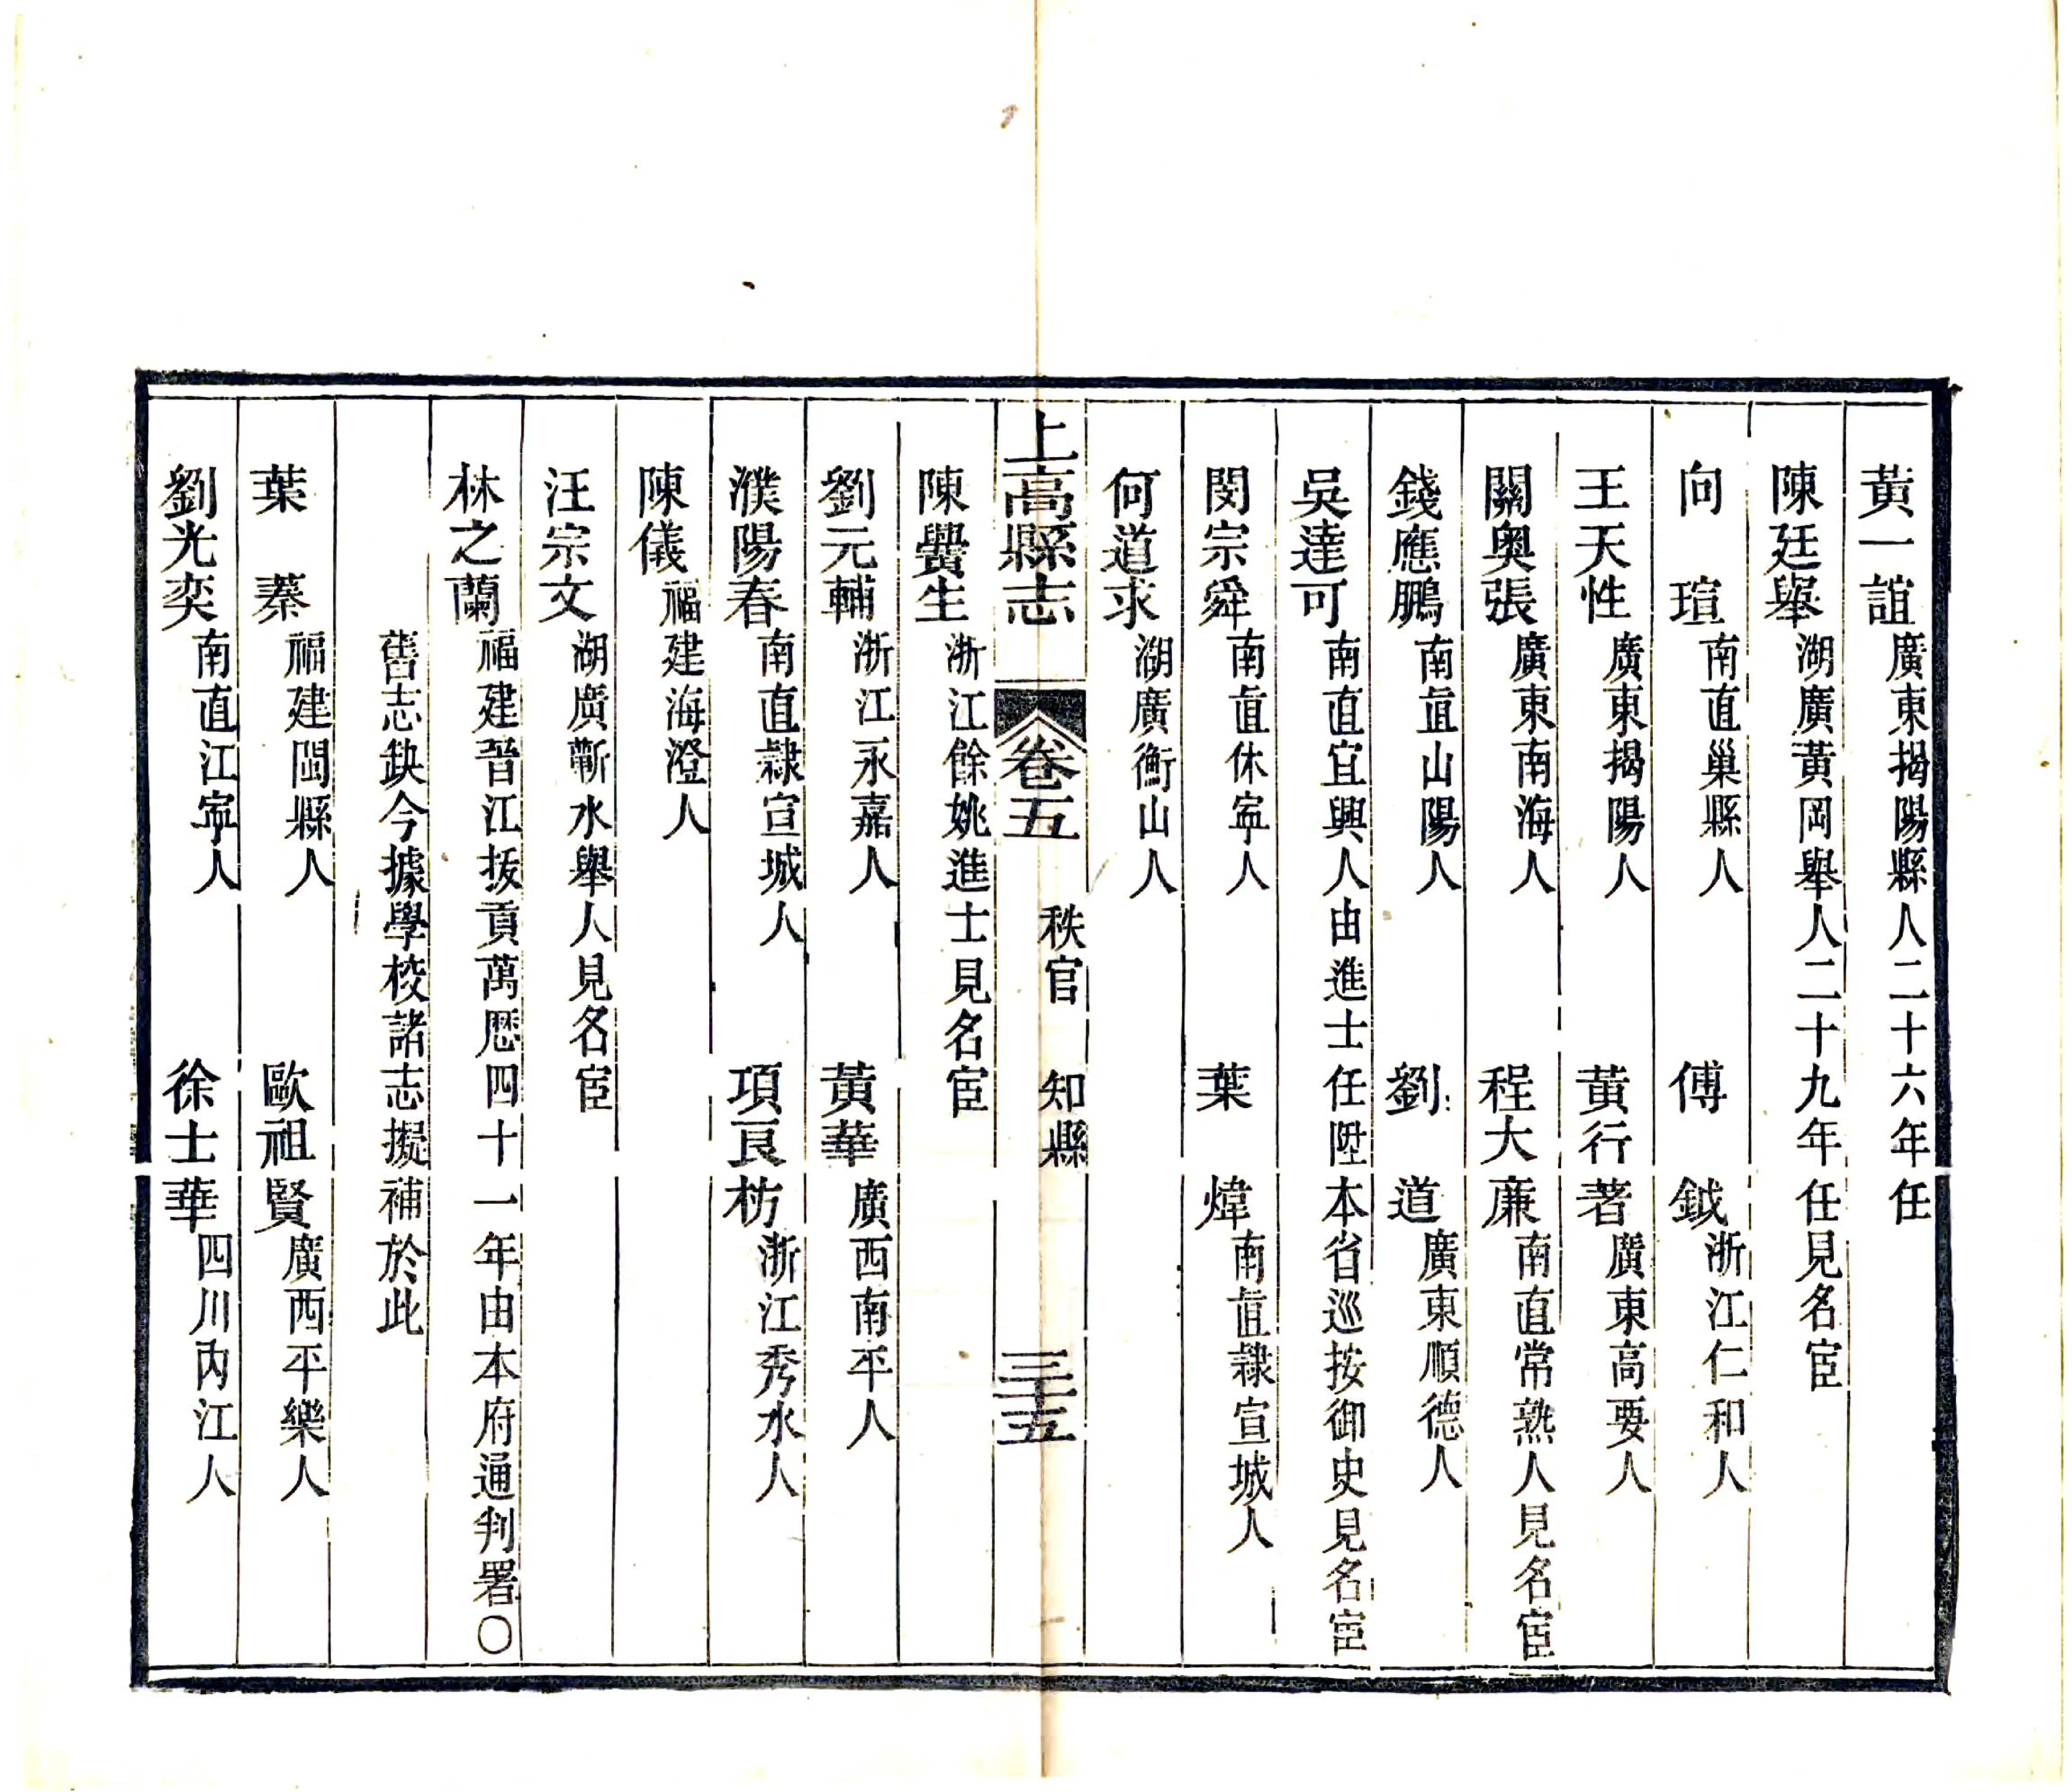 黃一誼廣東揭陽縣人二十六年任
陳廷舉湖廣黃岡舉人二十九年任見名宦
向瑄南直巢縣人 傅鉞浙江仁和人
王天性廣東揭陽人 黃行著廣東高要人
關奧張廣東南海人 程大廉南直常熟人見名宦
錢應鵬南直山陽人 劉道廣東順德人
吳達可南直宜興人由進士任陞本省巡按御史見名宦
閔宗舜南直休寧人 葉煒南直隸宣城人
何道求湖廣衡山人
上高縣志 卷五 秩官 知縣 三十五
陳舋生浙江餘姚進士見名宦
劉元輔浙江永嘉人 黃華廣西南平人
濮陽春南直隸宣城人 項良枋浙江秀水人
陳儀福建海澄人
汪宗文湖廣蘄水舉人見名宦
林之蘭福建晉江拔貢萬歷四十一年由本府通判署〇
舊志缺今據學校諸志擬補於此
葉蓁福建閩縣人 歐祖賢廣西平樂人
劉光奕南直江寧人 徐士華四川內江人